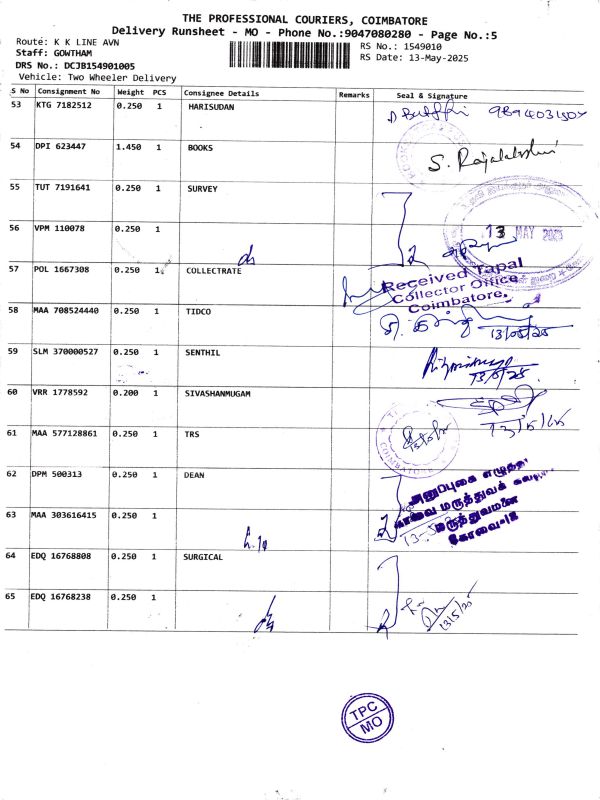 THE PROFESSIONAL COURIERS, COIMBATORE
Delivery Runsheet - MO - Phone No.:9047080280 - Page No.:5
Route: K K LINE AVN
RS No.: 1549010
Staff: GOWTHAM
RS Date: 13-May-2025
DRS No.: DCJB154901005
Vehicle: Two Wheeler Delivery
S No Consignment No Weight PCS Consignee Details Remarks Seal & Signature
53 KTG 7182512 0.250 1 HARISUDAN
54 DPI 623447 1.450 1 BOOKS S. Rajalakshmi
55 TUT 7191641 0.250 1 SURVEY
56 VPM 110078 0.250 1
13 MAY 2025
57 POL 1667308 0.250 1 COLLECTRATE
Received Tapal
Collector Office
Coimbatore.
58 MAA 708524440 0.250 1 TIDCO
13/05/25
59 SLM 370000527 0.250 1 SENTHIL
13/5/25
60 VRR 1778592 0.200 1 SIVASHANMUGAM
13/5/25
61 MAA 577128861 0.250 1 TRS
COIMBATORE
62 DPM 500313 0.250 1 DEAN
அனுப்புகை எழுத்தர்
கோவை மருத்துவக்
மருத்துவமனை
கோவை-18
63 MAA 303616415 0.250 1
64 EDQ 16768808 0.250 1 SURGICAL
65 EDQ 16768238 0.250 1
13/5/25
TPC
MO